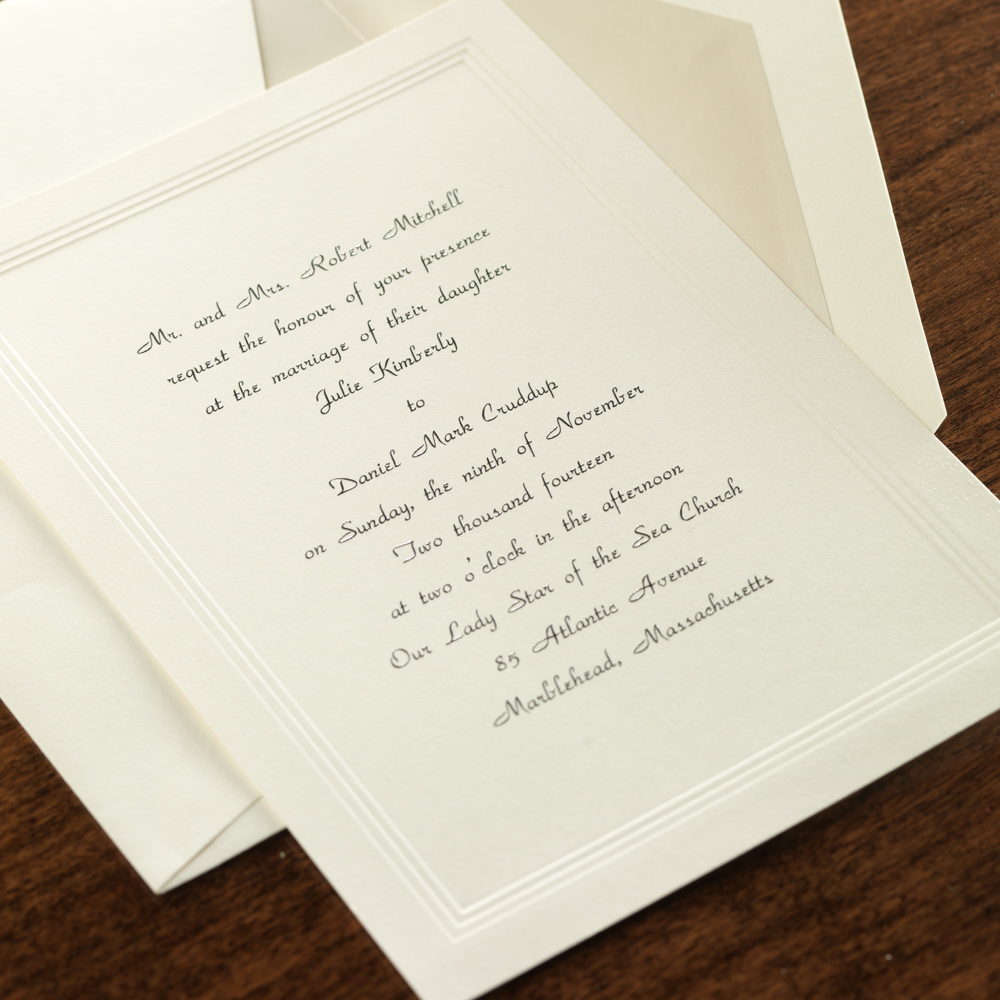 Mr. and Mrs. Robert Mitchell
request the honour of your presence
at the marriage of their daughter
Julie Kimberly
to
Daniel Mark Cruddup
on Sunday, the ninth of November
Two thousand fourteen
at two o'clock in the afternoon
Our Lady Star of the Sea Church
85 Atlantic Avenue
Marblehead, Massachusetts